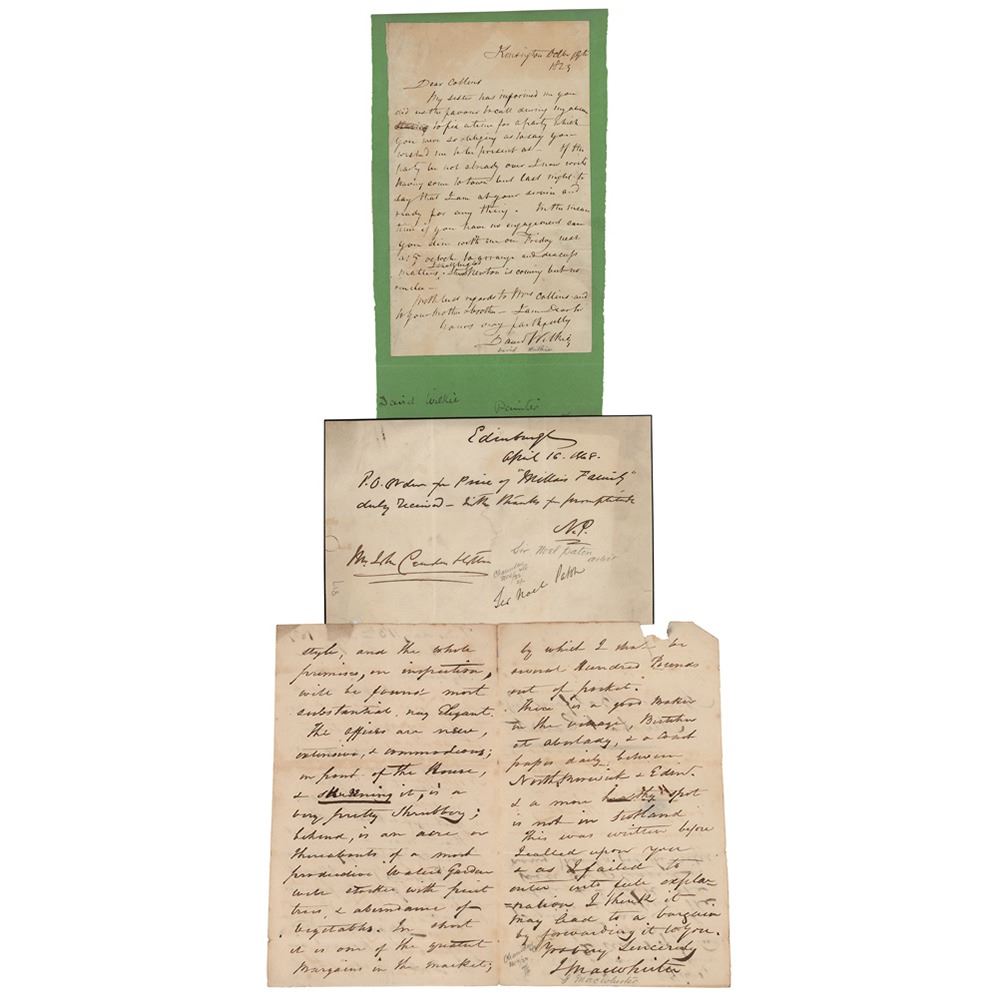 Kensington Octbr
1823
Dear Collins
My sister has informed me you
did us the favour to call during my absen
to fix a time for a party which
you were so obliging as to say you
wished me to be present at - If the
party be not already over I now write
having come to town but last night to
say that I am at your service and
ready for any thing. In the mean
time if you have no engagement can
you dine with me on Friday next
at 5 oclock to arrange and discuss
matters. Newton is coming but no
one else -
With best regards to Mrs Collins and
to your Mother & brother - I am Dear Sir
Yours very faithfully
David Wilkie
David Wilkie
David Wilkie Painter
Edinburgh
April 16. 1868.
P.O. order for Price of "Millais Family"
duly received - with thanks for promptitude
N.P.
Sir Noel Paton
artist
Mr John Camden Hotten
Sir Noel Paton
style, and the whole
premises, on inspection,
will be found most
substantial, nay Elegant.
The offices are new,
extensive, & commodious;
in front of the House,
& skreening it, is a
very pretty Shrubbery;
behind, is an acre or
thereabouts of a most
productive Walled Garden
well stocked with fruit
trees, & abundance of
vegetables. In short
it is one of the greatest
bargains in the market;
by which I shall be
several Hundred Pounds
out of pocket.
There is a good Baker
in the village, Butcher
at Aberlady, & a Coach
passes daily, between
North Berwick & Edinr.
& a more healthy spot
is not in Scotland
This was written before
I called upon you
& as I failed to
enter into full expla-
=nation I think it
may lead to a bargain
by forwarding it to you.
Yours Sincerely
J MacWhirter
J MacWhirter